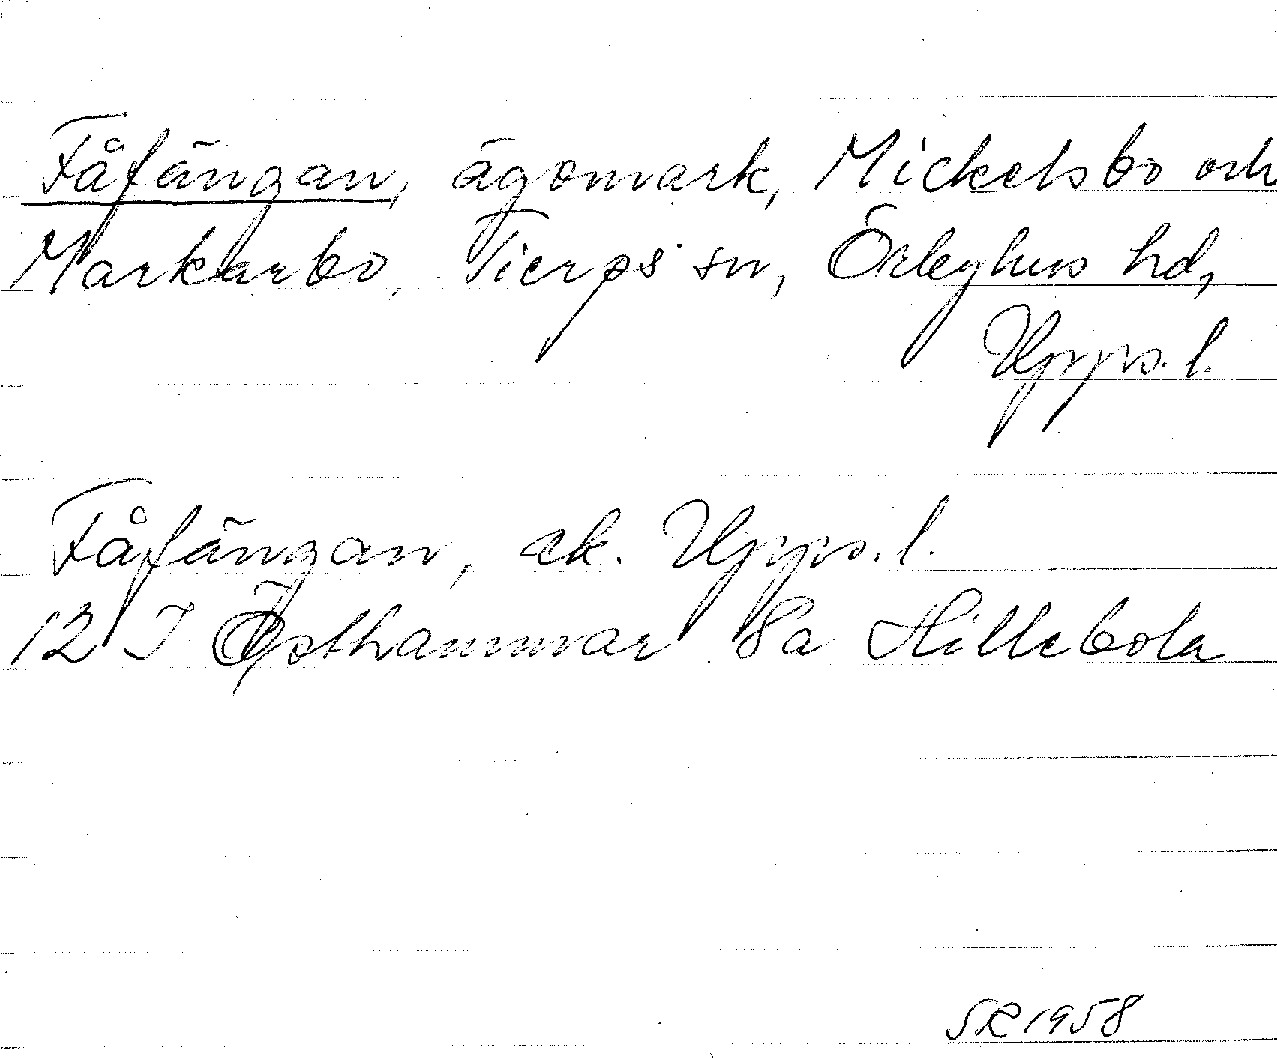 Fåfängan, ägomark, Mickelsbo och
Markarbo, Tierps sn, Örbyhus hd,
Upps. l.
Fåfängan, ek. Upps. l.
12 I Östhammar 8a Hillebola
SR 1958